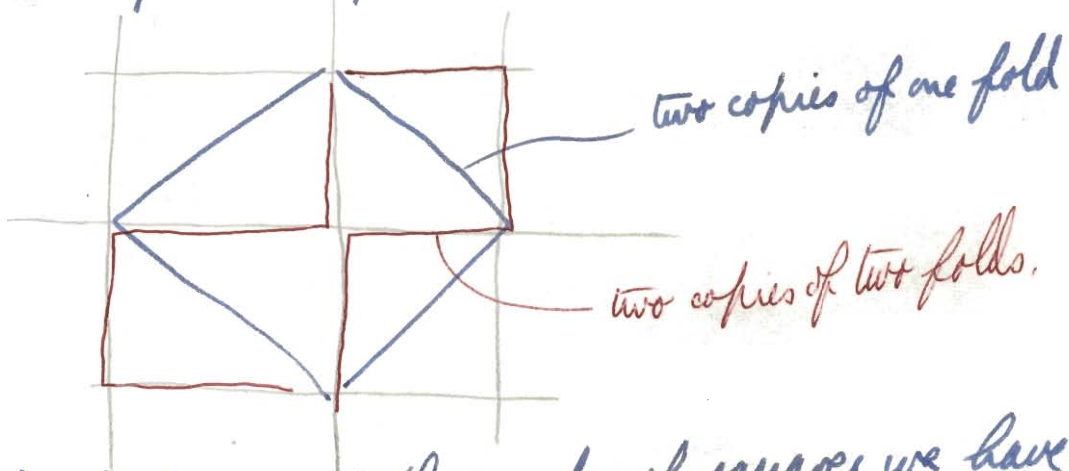 two copies of one fold
two copies of two folds.
we have